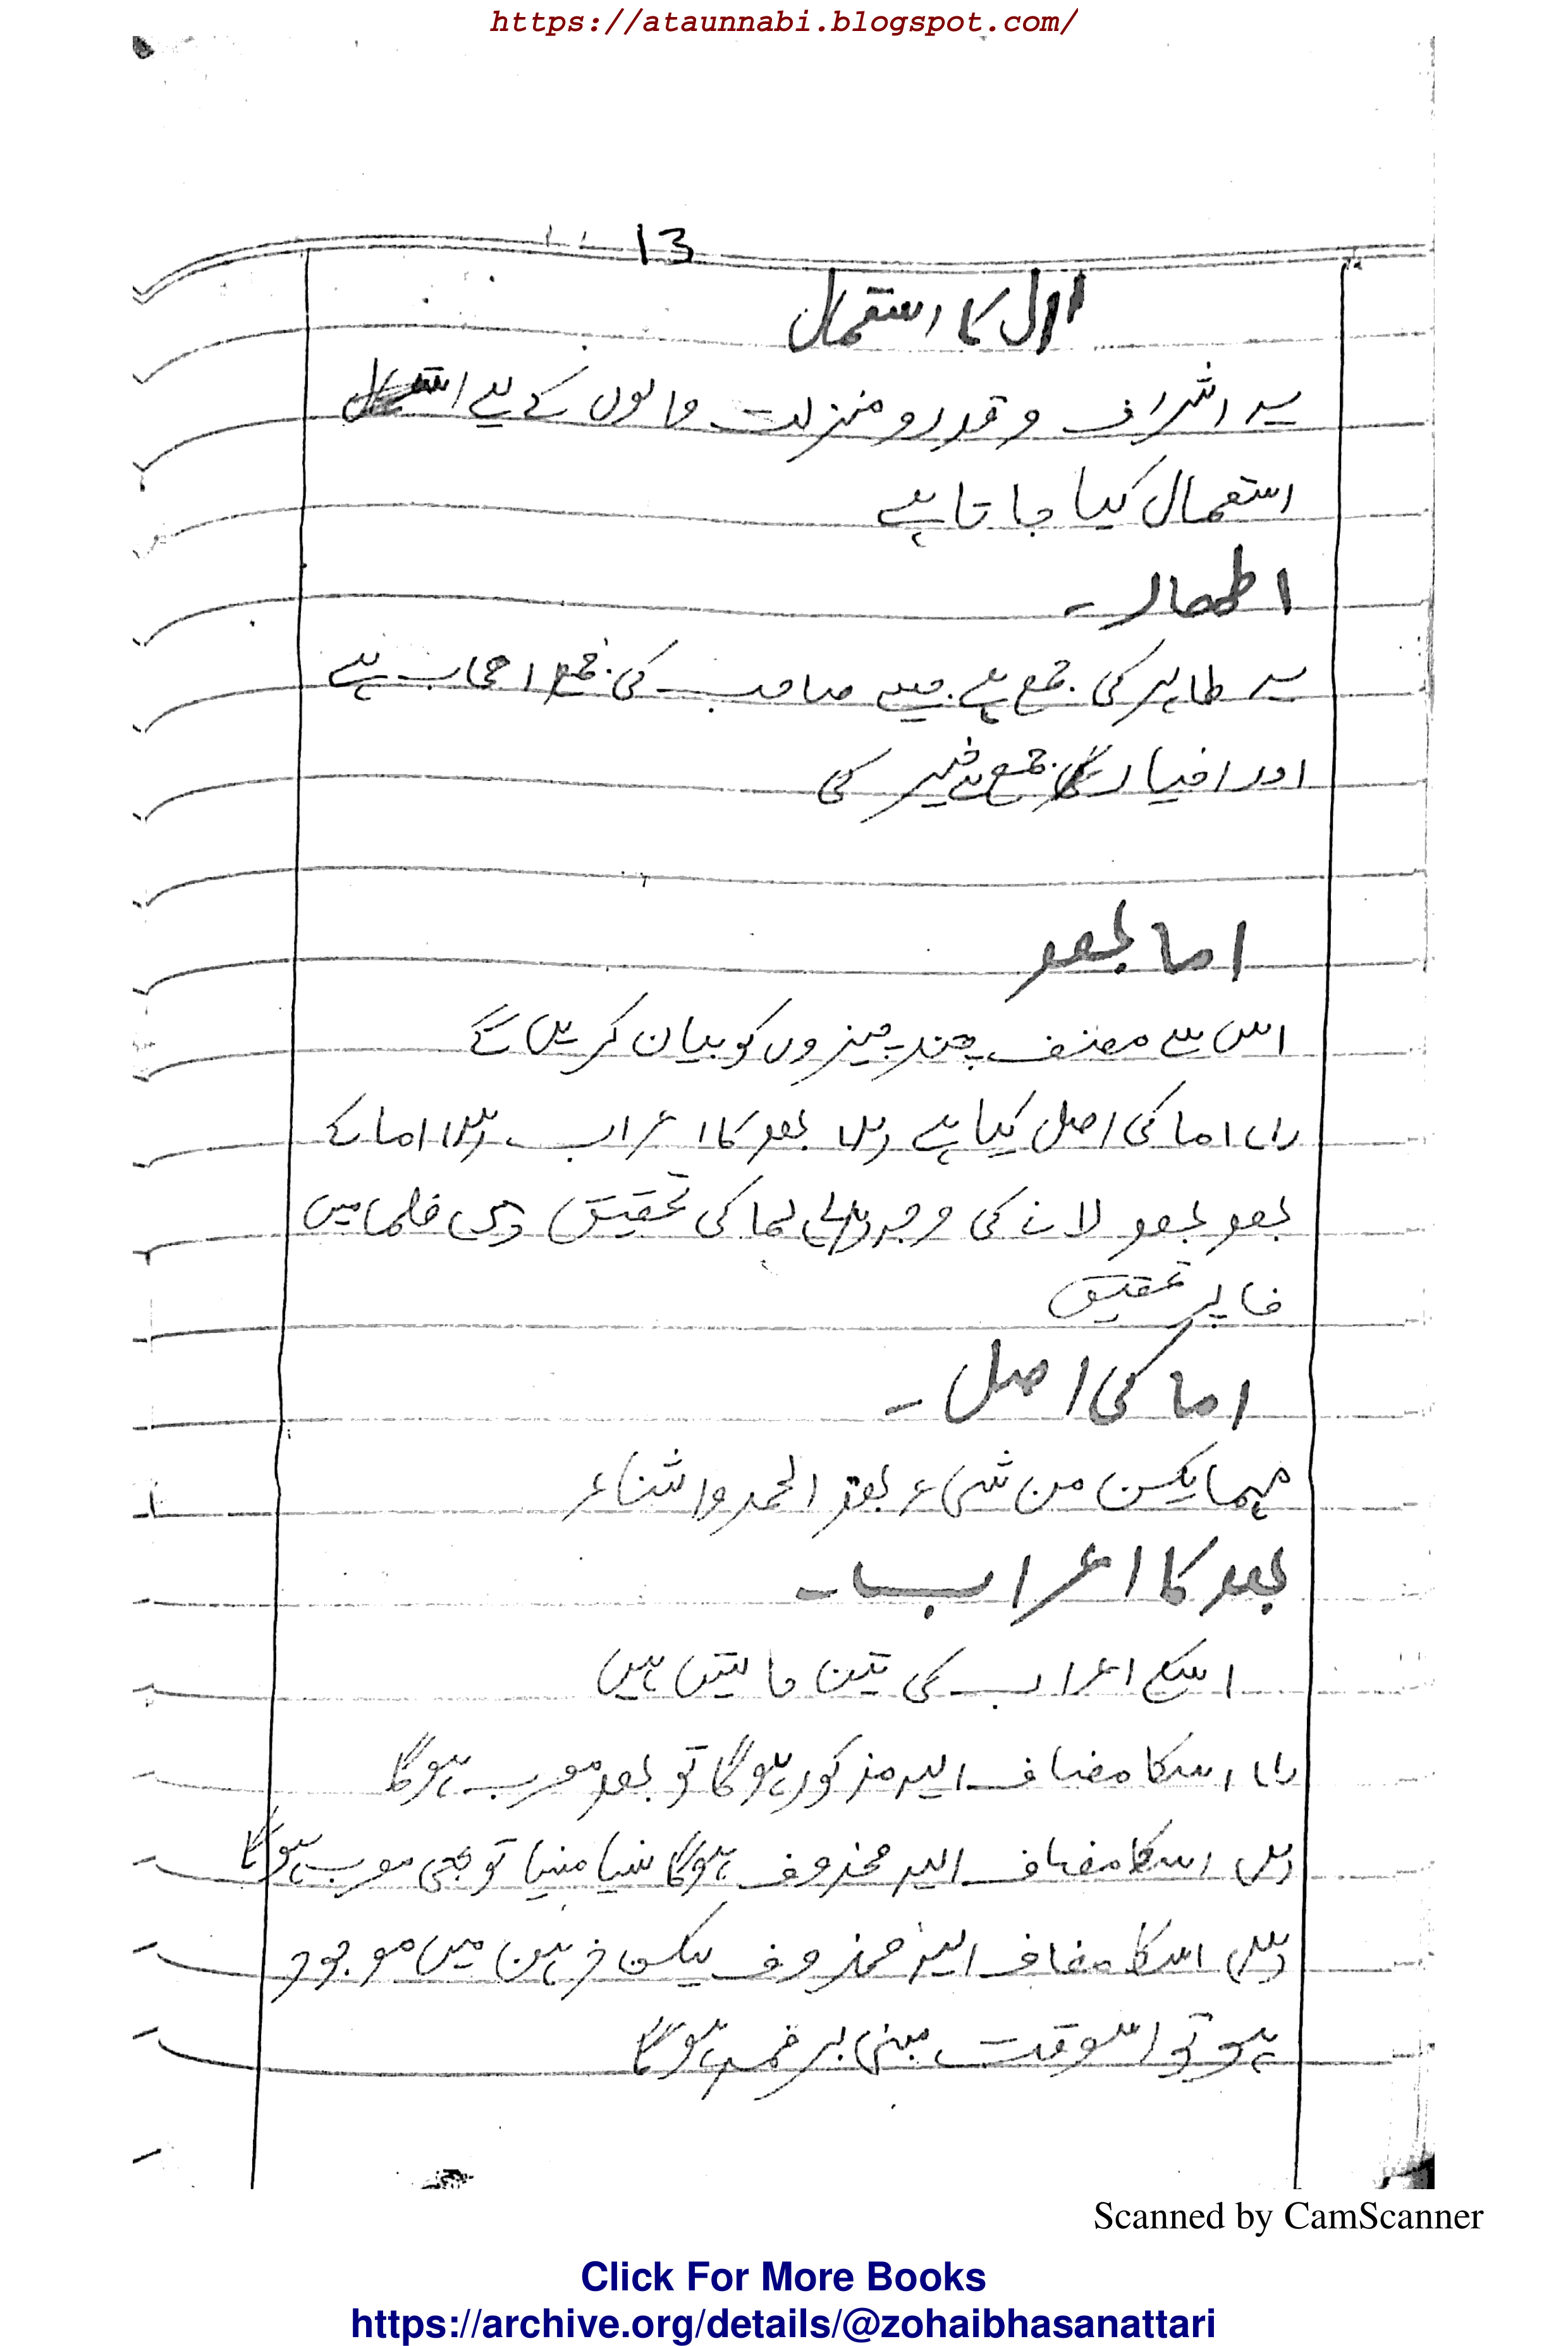 https://ataunnabi.blogspot.com/
13
ال کا استعمال
یہ اشراف و قدر و منزلت والوں کے لیے
استعمال کیا جاتا ہے
اطہار۔
یہ طاہر کی جمع ہے جیسے صاحب کی جمع اصحاب ہے
اور اخیار کی جمع ہے خیر کی
اما بعد
اس سے مصنف چند چیزوں کو بیان کریں گے
(۱) اما کی اصل کیا ہے (۲) بعد کا اعراب (۳) اما کے
بعد بعد لانے کی وجہ (۴) لما کی تحقیق (۵) فلما میں
فا پر تحقیق
اما کی اصل ۔
مہما یکن من شیء بعد الحمد و اثناء
بعد کا اعراب ۔
اسکے اعراب کی تین حالتیں ہیں
(۱) اسکا مضاف الیہ مذکور ہوگا تو بعد معرب ہوگا
(۲) اسکا مضاف الیہ محذوف ہوگا نسیا منسیا تو بھی معرب ہوگا
(۳) اسکا مضاف الیہ محذوف لیکن ذہن میں موجود
ہو تو اسوقت مبنی بر ضمہ ہوگا
Scanned by CamScanner
Click For More Books
https://archive.org/details/@zohaibhasanattari